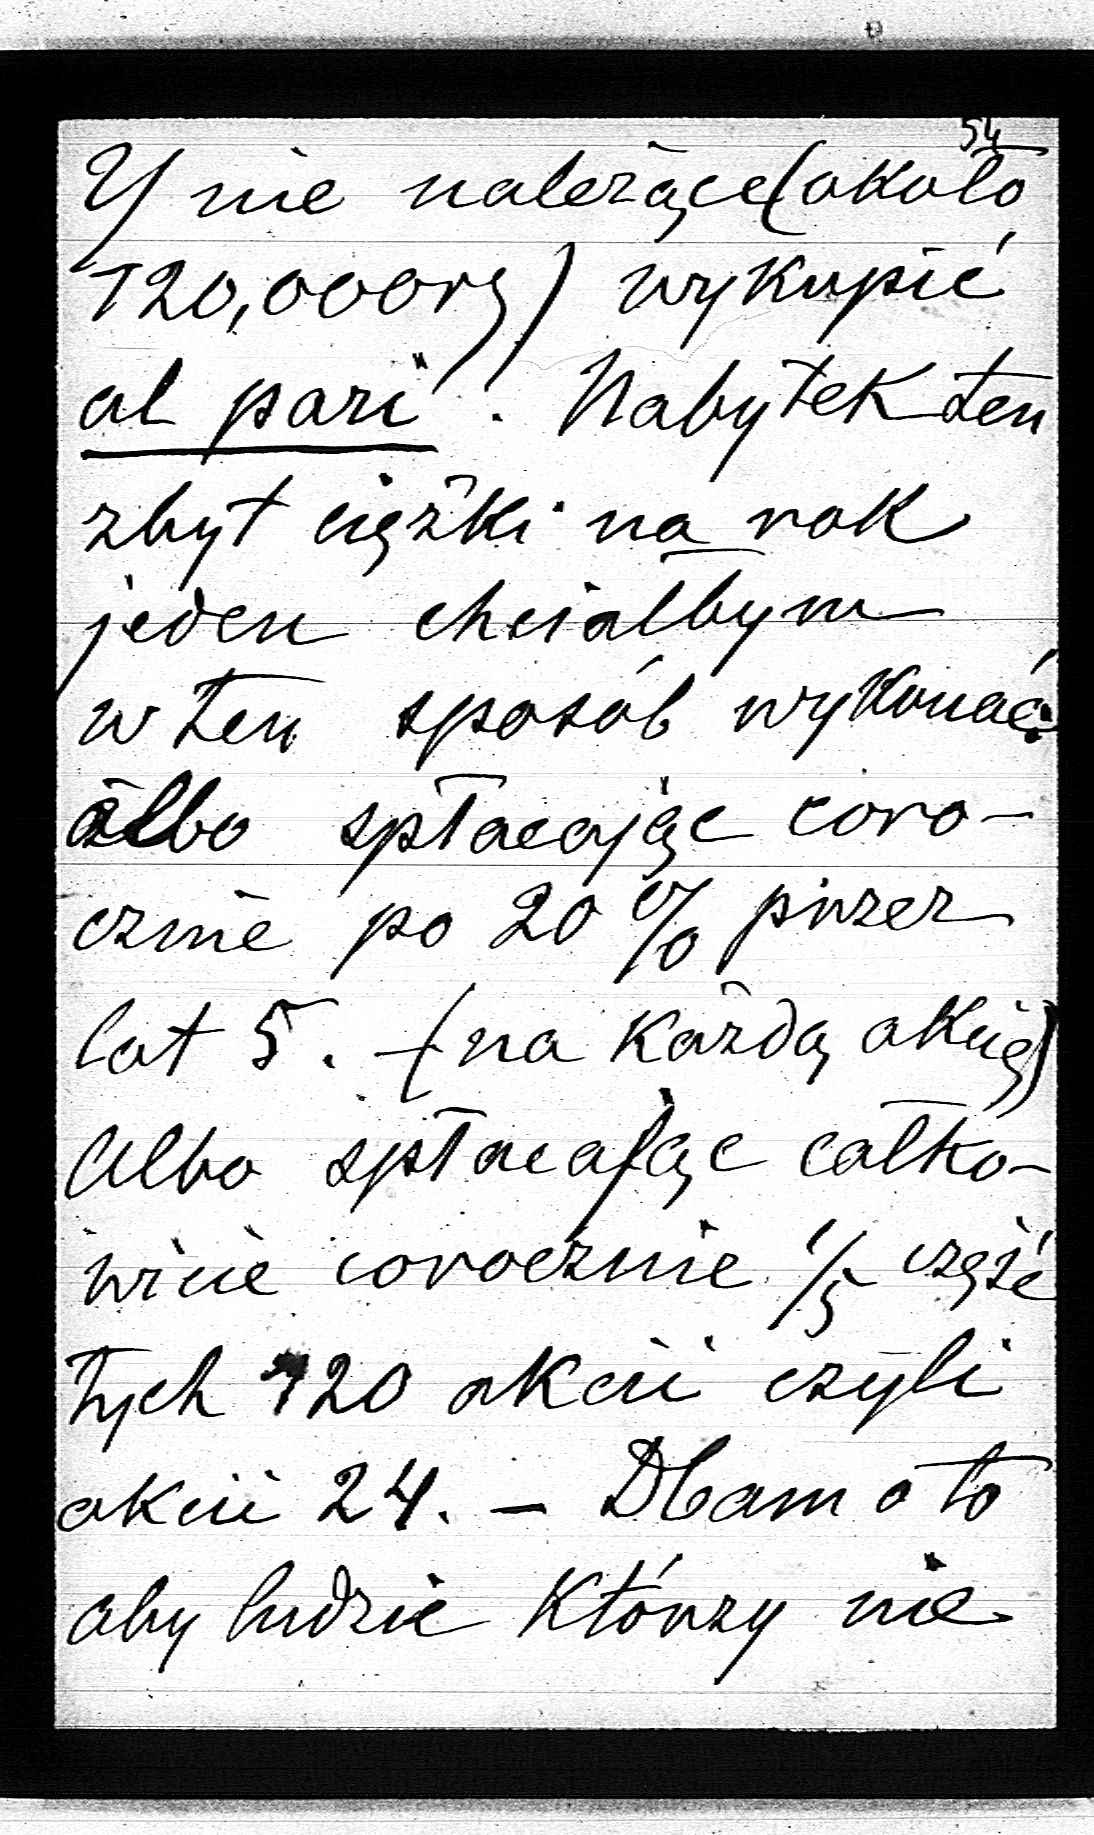 54
Y nie należące (około
120,000 rs) wykupić
al pari. Nabytek ten
zbyt ciężki na rok
jeden chciałbym
w ten sposób wykonać:
albo spłacając coro-
cznie po 20 % przez
lat 5. – (na każdą akcię)
Albo spłacając całko-
wicie corocznie 1/5 część
tych 120 akcii czyli
akcii 24. – Dbam o to
aby ludzie którzy nie